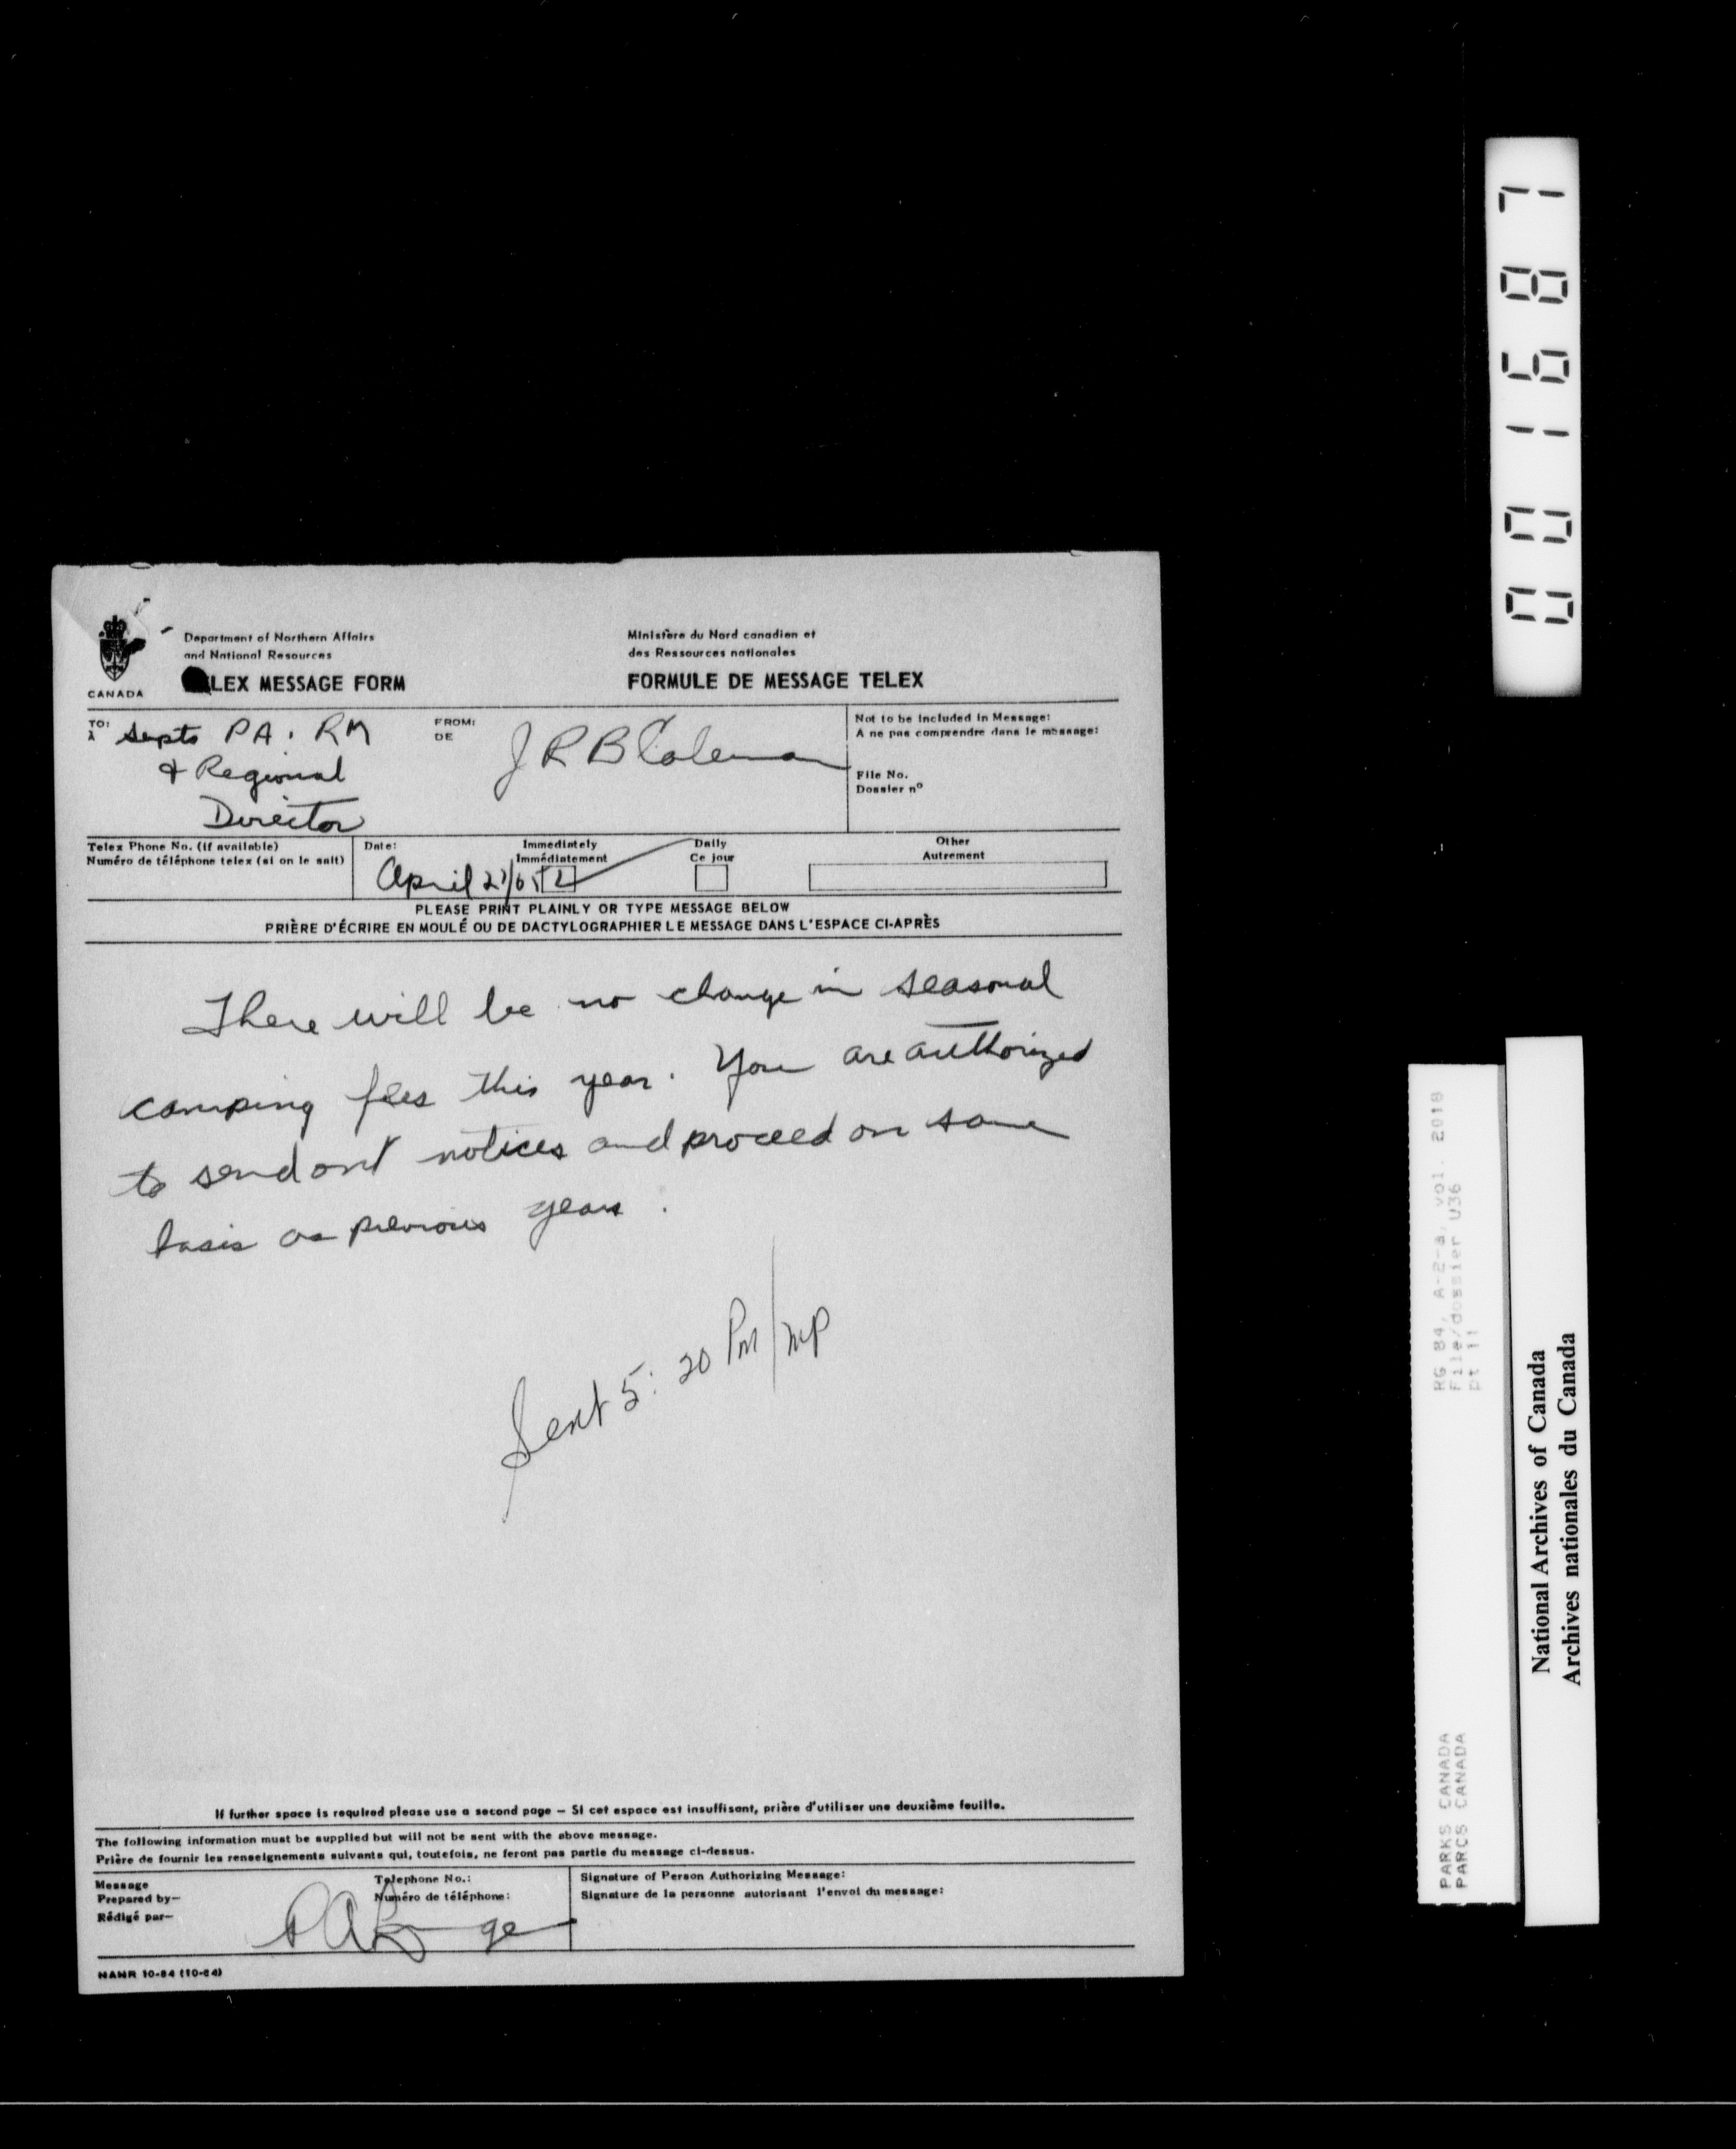 Department of Northern Affairs
and National Resources
LEX MESSAGE FORM
Ministère du Nord canadien et
des Ressources nationales
FORMULE DE MESSAGE TELEX
CANADA
TO:
À
Supts PA. RM
& Regional
Director
FROM:
DE
J R B Coleman
Not to be included in Message:
A ne pas comprendre dans le message:
File No.
Dossier nº
Telex Phone No. (if available)
Numéro de téléphone telex (si on le sait)
Date:
April 21/65
Immediately
Immédiatement
Daily
Ce jour
Other
Autrement
PLEASE PRINT PLAINLY OR TYPE MESSAGE BELOW
PRIÈRE D'ÉCRIRE EN MOULÉ OU DE DACTYLOGRAPHIER LE MESSAGE DANS L'ESPACE CI-APRÈS
There will be no change in seasonal
camping fees this year. You are authorized
to send out notices and proceed on same
basis as previous years.
Sent 5:20 PM/mp
If further space is required please use a second page – Si cet espace est insuffisant, prière d'utiliser une deuxième feuille.
The following information must be supplied but will not be sent with the above message.
Prière de fournir les renseignements suivants qui, toutefois, ne feront pas partie du message ci-dessus.
Message
Prepared by—
Rédigé par—
Telephone No.:
Numéro de téléphone:
Signature of Person Authorizing Message:
Signature de la personne autorisant l'envoi du message:
NANR 10-84 (10-64)
001687
RG 84, A-2-a, vol. 2018
File/dossier U36
pt 11
PARKS CANADA
PARCS CANADA
National Archives of Canada
Archives nationales du Canada